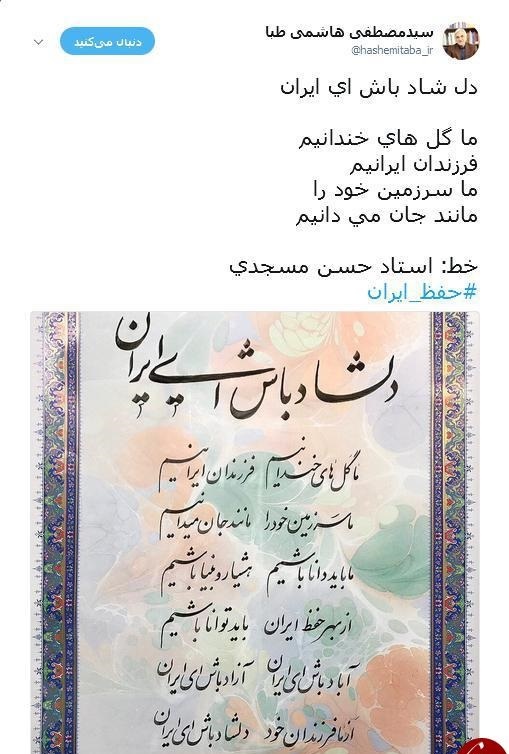 سیدمصطفی هاشمی طبا
@hashemitaba_ir
دنبال می‌کنید
دل شاد باش اي ایران
ما گل هاي خندانیم
فرزندان ایرانیم
ما سرزمین خود را
مانند جان مي دانیم
خط: استاد حسن مسجدي
#حفظ_ایران
دلشاد باش ای ایران
ما گل های خندانیم فرزندان ایرانیم
ما سرزمین خود را مانند جان میدانیم
ما باید دانا باشیم هشیار و بینا باشیم
از بهر حفظ ایران باید توانا باشیم
آباد باش ای ایران آزاد باش ای ایران
از ما فرزندان خود دلشاد باش ای ایران